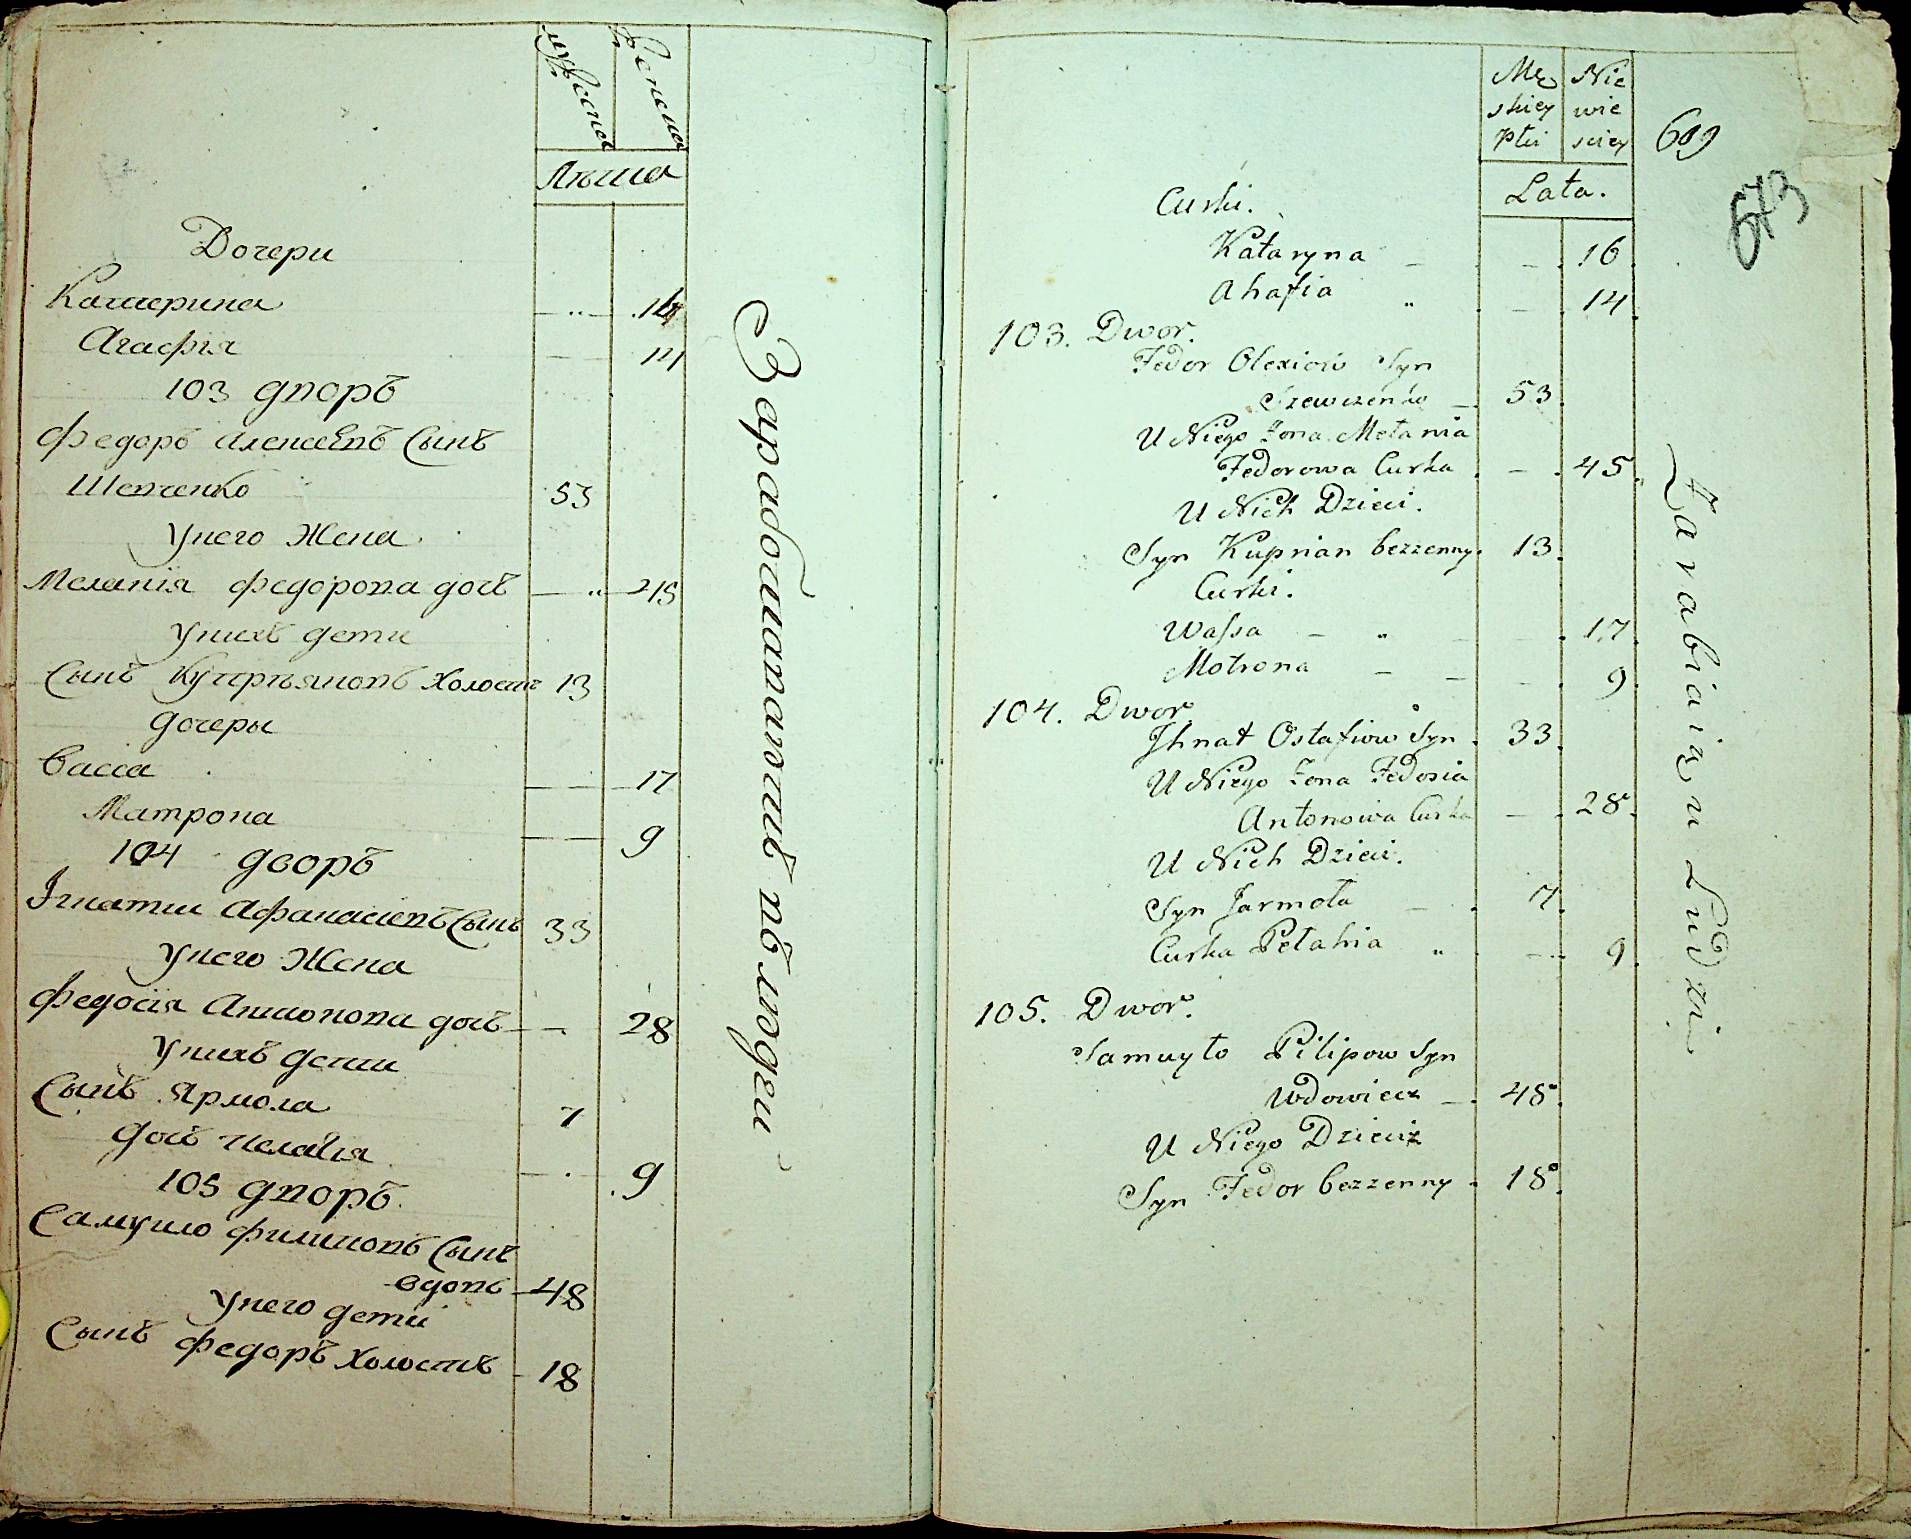 Мужеска
Женска
Лѣта
Дочери
Катерина - " - 14
Агафия - - 14
103 дворъ
Федоръ Алексѣевъ Сынъ
Шевченко 53
У него Жена
Мелания Федорова дочь - " - 45
У нихъ дети
Сынъ Куприяновъ холостъ 13
дочеры
Васса - - 17
Матрона - 9
104 дворъ
Игнатий Афанасиевъ Сынъ 33
У него Жена
Федосия Антонова дочь - 28
У нихъ дети
Сынъ Ярмола 7
дочь Пелагия - 9
105 дворъ
Самуило Филиповъ Сынъ
вдовъ 48
У него дети
Сынъ Федоръ холостъ 18
Męskiey Płci
Niewieściey
609
673
Lata.
Curki.
Kataryna - - 16
Ahafia " - 14
103. Dwor.
Fedor Olexiow Syn
Szewczenko - 53
U Niego Zona Melania
Fedorowa Curka - 45
U Nich Dzieci.
Syn Kuprian bezzenny 13
Curki.
Wassa - " - 17
Motrona - - - 9
104. Dwor
Jhnat Ostafiow Syn 33
U Niego Zona Fedosia
Antonowa Curka - 28
U Nich Dzieci.
Syn Jarmoła - 7
Curka Pełahia " - 9
105. Dwor.
Samuyło Pilipow Syn
Wdowiecz - 48
U Niego Dzieci
Syn Fedor bezzenny 18
Zarabiaią u Ludzi